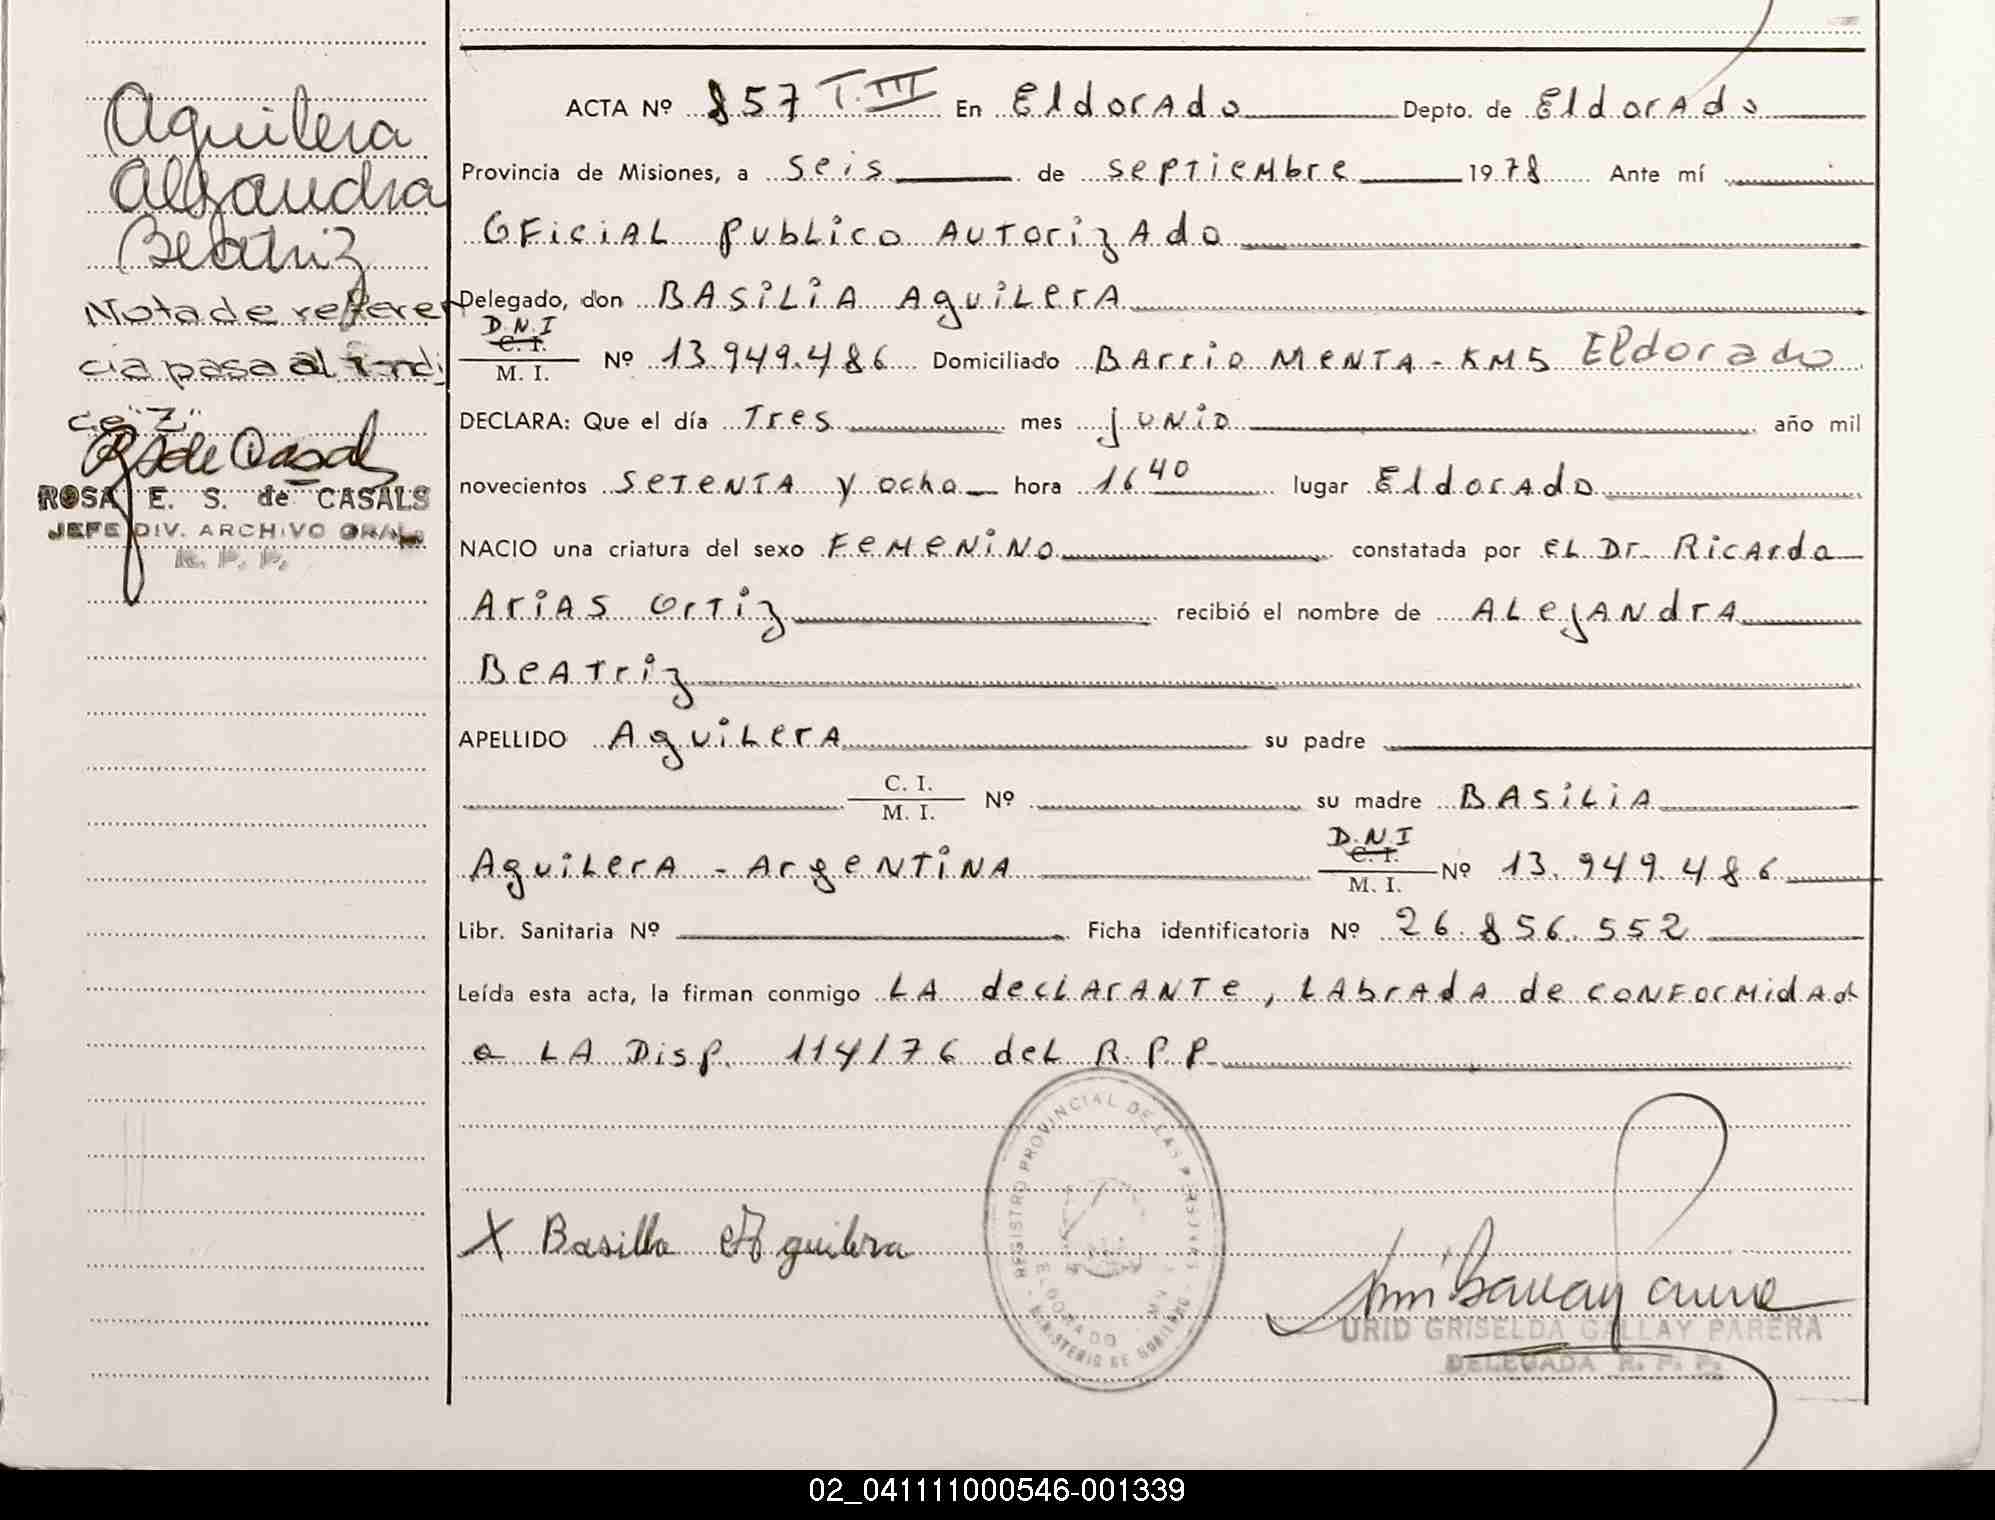 Aguilera
Alejandra
Beatriz
Nota de referen
cia pasa al indi
ce "Z"
ROSA E. S. de CASALS
JEFE DIV. ARCHIVO GRAL.
R. P. P.
ACTA Nº 857 T. III En Eldorado Depto. de Eldorado
Provincia de Misiones, a seis de septiembre 1978 Ante mí
Oficial Publico Autorizado
Delegado, don Basilia Aguilera
D.N.I
C. I.
M. I. Nº 13.949.486 Domiciliado Barrio Menta - KM5 Eldorado
DECLARA: Que el día Tres mes junio año mil
novecientos setenta y ocho hora 16 40 lugar Eldorado
NACIO una criatura del sexo Femenino constatada por el Dr. Ricardo
Arias Ortiz recibió el nombre de Alejandra
Beatriz
APELLIDO Aguilera su padre
C. I.
M. I. Nº su madre Basilia
D.N.I
C. I.
Aguilera - Argentina M. I. Nº 13.949.486
Libr. Sanitaria Nº Ficha identificatoria Nº 26.856.552
Leída esta acta, la firman conmigo la declarante, labrada de conformidad
a la Disp. 114/76 del R.P.P.
REGISTRO PROVINCIAL DE LAS PERSONAS
ELDORADO
MINISTERIO DE GOBIERNO
X Basilia Aguilera
URID GRISELDA GALLAY PARERA
DELEGADA R. P. P.
02_041111000546-001339